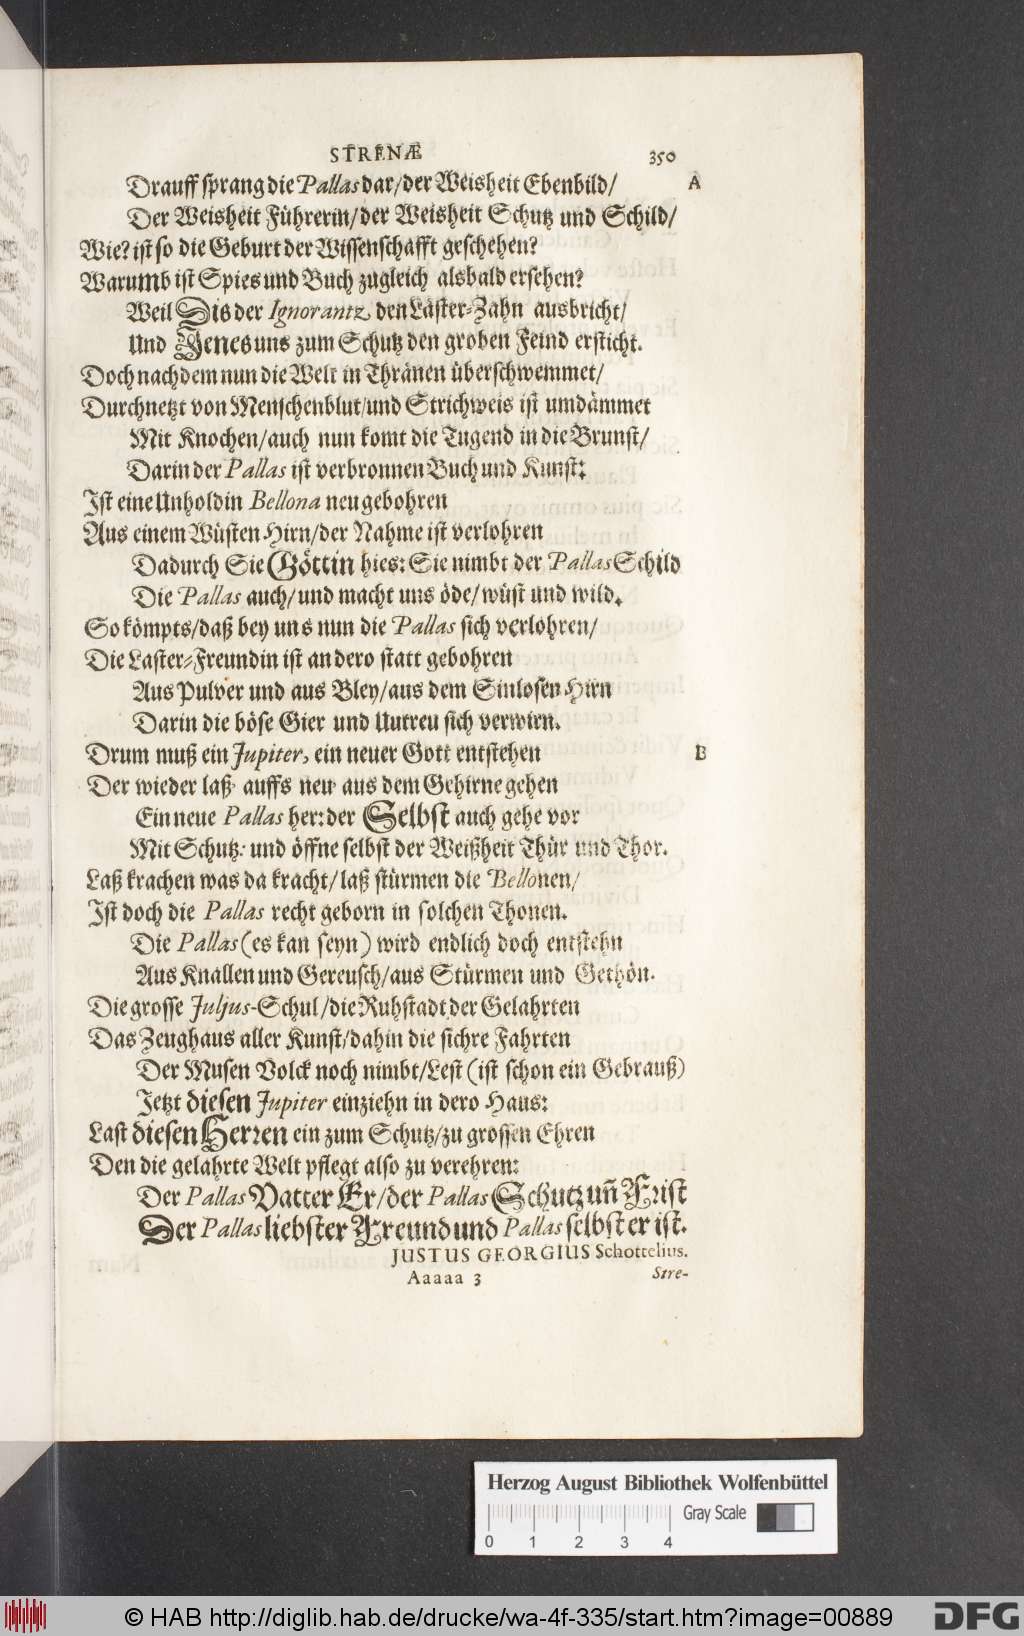 STRENÆ 350
Drauff sprang die Pallas dar/der Weisheit Ebenbild/ A
Der Weisheit Führerin/der Weisheit Schutz und Schild/
Wie? ist so die Geburt der Wissenschafft geschehen?
Warumb ist Spies und Buch zugleich alsbald ersehen?
Weil Dis der Ignorantz den Laster-Zahn ausbricht/
Und Jenes uns zum Schutz den groben Feind ersticht.
Doch nachdem nun die Welt in Thränen überschwemmet/
Durchnetzt von Menschenblut/und Strichweis ist umdämmet
Mit Knochen/auch nun komt die Tugend in die Brunst/
Darin der Pallas ist verbronnen Buch und Kunst:
Ist eine Unholdin Bellona neu gebohren
Aus einem Wüsten Hirn/der Nahme ist verlohren
Dadurch Sie Göttin hies: Sie nimbt der Pallas Schild
Die Pallas auch/und macht uns öde/wüst und wild.
So kömpts/daß bey uns nun die Pallas sich verlohren/
Die Laster-Freundin ist an dero statt gebohren
Aus Pulver und aus Bley/aus dem Sinlosen Hirn
Darin die böse Gier und Uutreu sich verwirn.
Drum muß ein Jupiter, ein neuer Gott entstehen B
Der wieder laß auffs neu aus dem Gehirne gehen
Ein neue Pallas her: der Selbst auch gehe vor
Mit Schutz: und öffne selbst der Weißheit Thür und Thor.
Laß krachen was da kracht/laß stürmen die Bellonen/
Ist doch die Pallas recht geborn in solchen Thonen.
Die Pallas (es kan seyn) wird endlich doch entstehn
Aus Knallen und Gereusch/aus Stürmen und Gethön.
Die grosse Juljus-Schul/die Ruhstadt der Gelahrten
Das Zeughaus aller Kunst/dahin die sichre Fahrten
Der Musen Volck noch nimbt/Lest (ist schon ein Gebrauß)
Jetzt diesen Jupiter einziehn in dero Haus:
Last diesen Herren ein zum Schutz/zu grossen Ehren
Den die gelahrte Welt pflegt also zu verehren:
Der Pallas Vatter Er/der Pallas Schutz uñ Frist
Der Pallas liebster Freund und Pallas selbst er ist.
JUSTUS GEORGIUS Schottelius.
Aaaaa 3 Stre-
Herzog August Bibliothek Wolfenbüttel
Gray Scale
0 1 2 3 4
© HAB http://diglib.hab.de/drucke/wa-4f-335/start.htm?image=00889 DFG